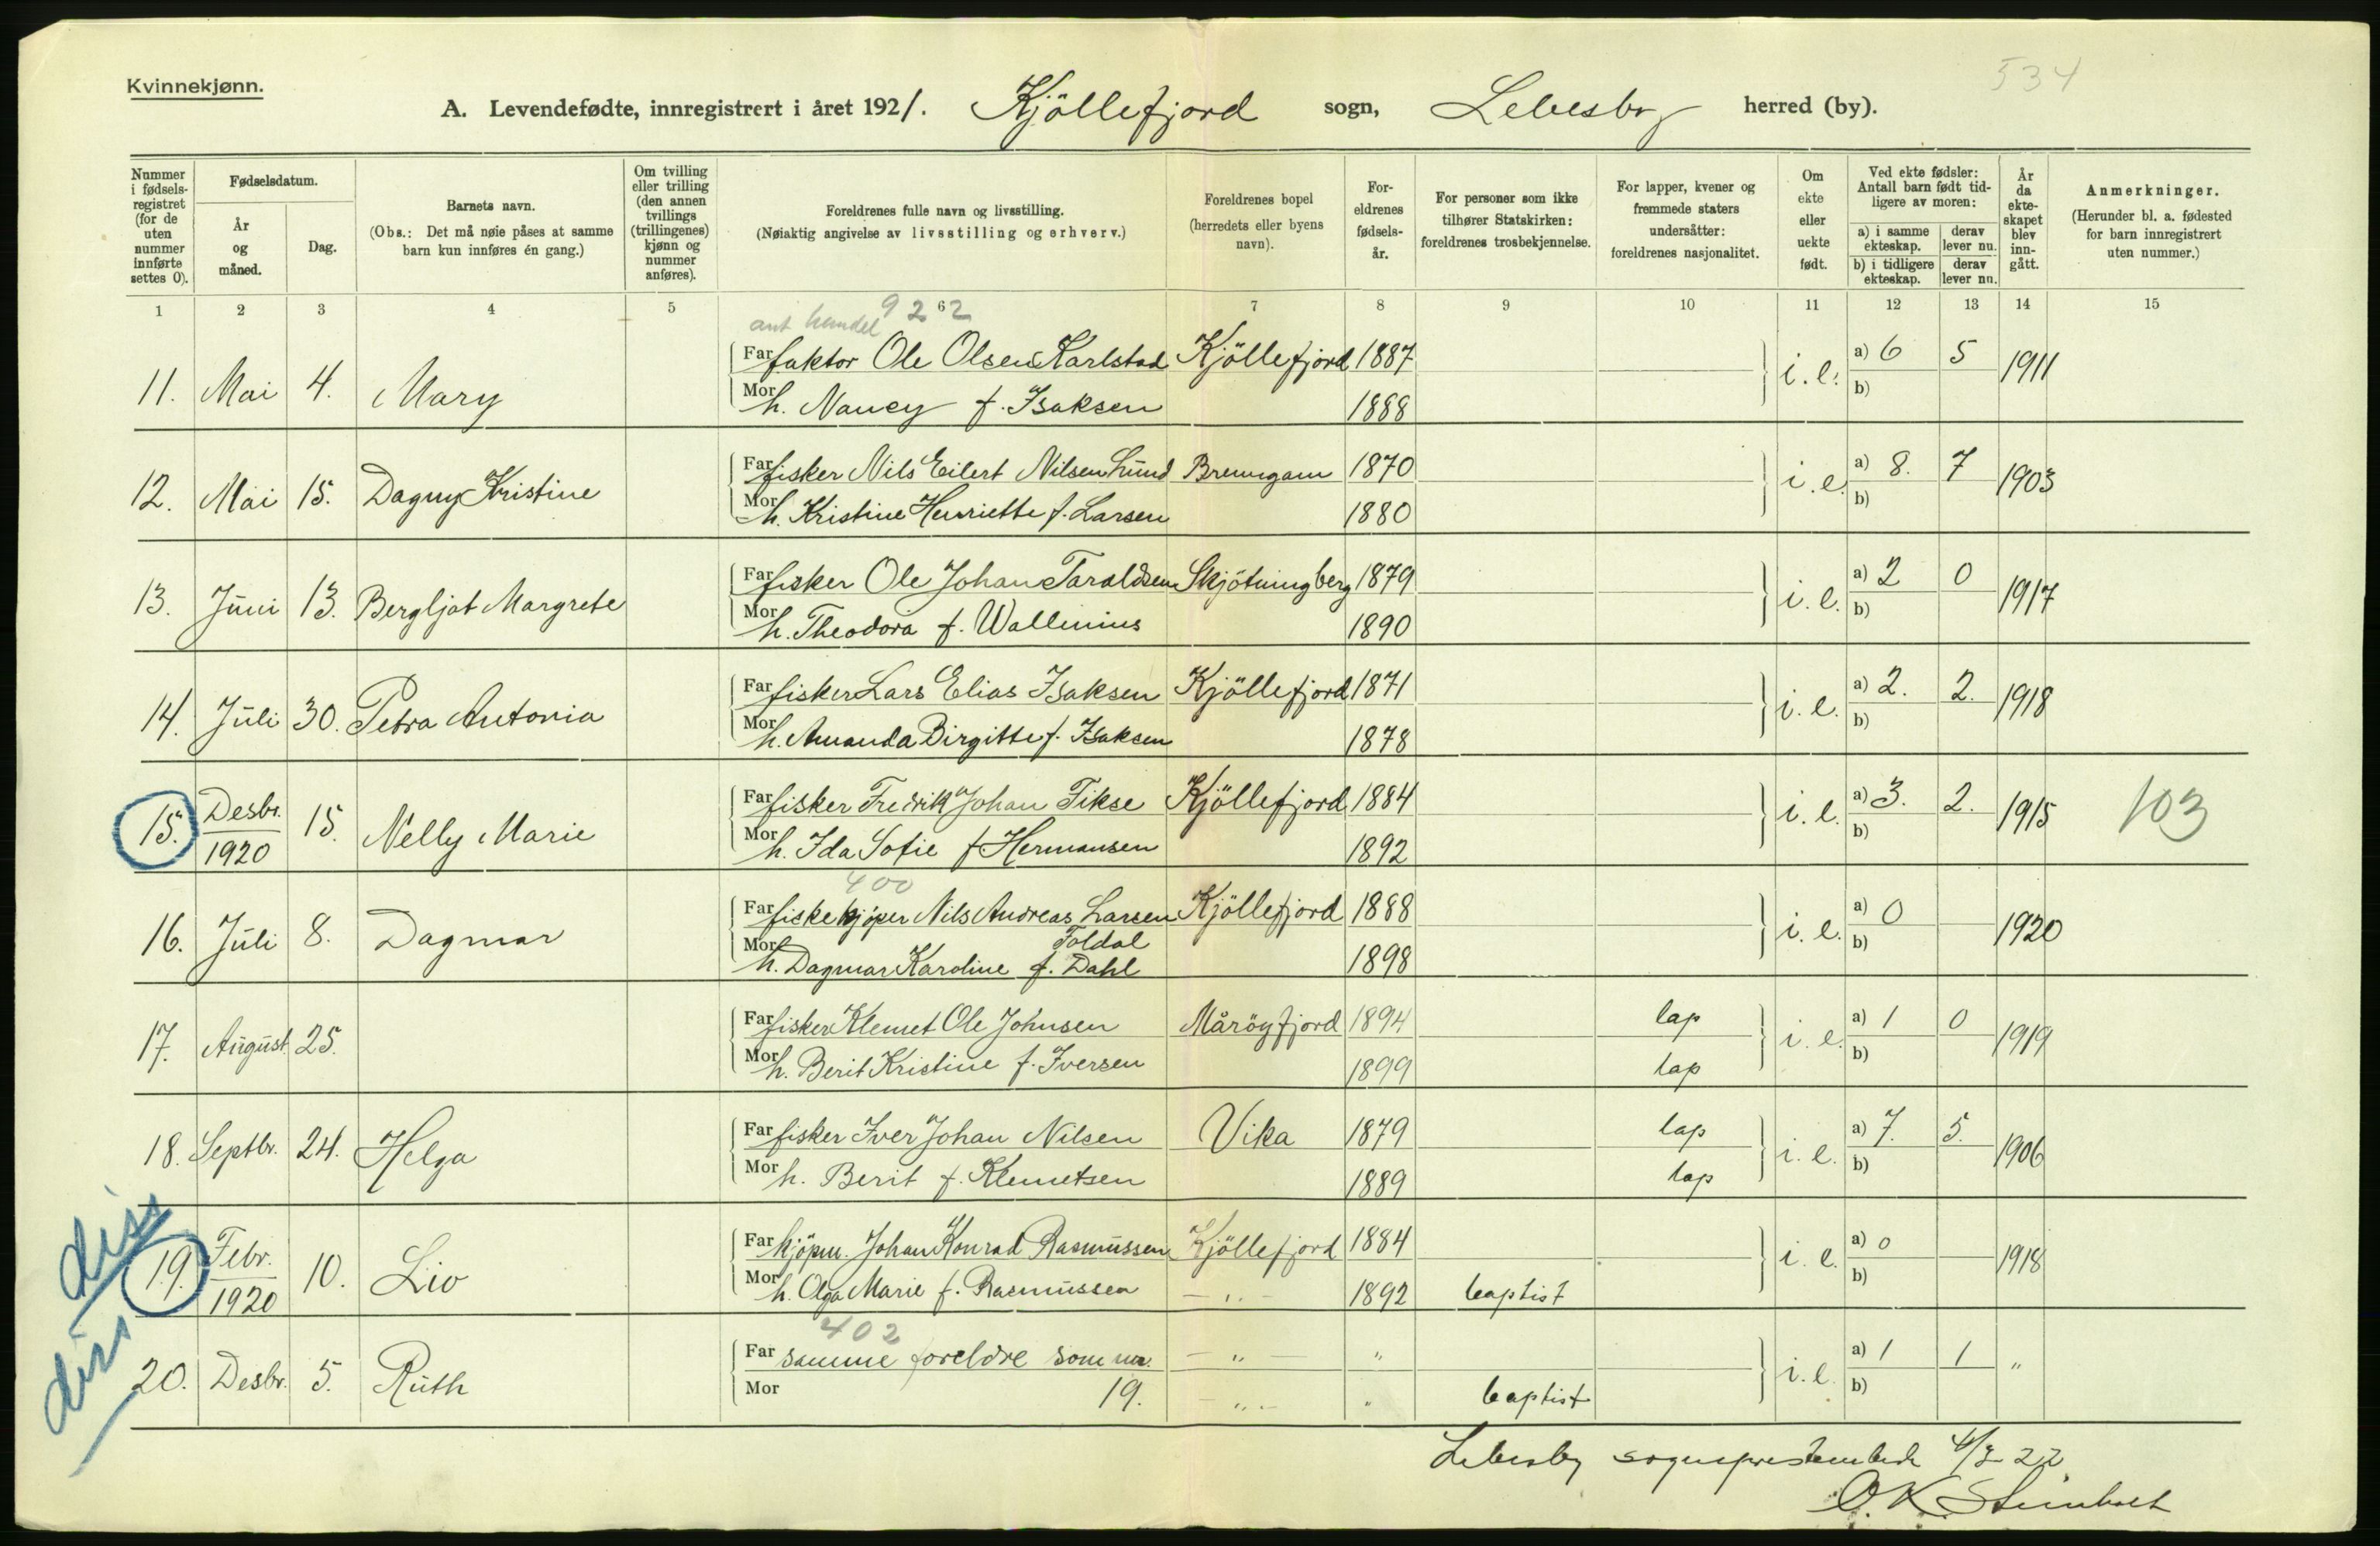 Kvinnekjønn.
534
A. Levendefødte, innregistrert i året 1921. Kjöllefjord sogn, Lebesby herred (by).
Nummer i fødsels-registret (for de uten nummer innførte settes 0).
Fødselsdatum.
År og måned.
Dag.
Barnets navn.
(Obs.: Det må nøie påses at samme barn kun innføres én gang.)
Om tvilling eller trilling (den annen tvillings (trillingenes) kjønn og nummer anføres).
Foreldrenes fulle navn og livsstilling.
(Nøiaktig angivelse av livsstilling og erhverv.)
Foreldrenes bopel (herredets eller byens navn).
For-eldrenes fødsels-år.
For personer som ikke tilhører Statskirken: foreldrenes trosbekjennelse.
For lapper, kvener og fremmede staters undersåtter: foreldrenes nasjonalitet.
Om ekte eller uekte født.
Ved ekte fødsler: Antall barn født tid-ligere av moren:
a) i samme ekteskap. derav lever nu.
b) i tidligere ekteskap. derav lever nu.
År da ekte-skapet blev inn-gått.
Anmerkninger.
(Herunder bl. a. fødested for barn innregistrert uten nummer.)
1 2 3 4 5 6 7 8 9 10 11 12 13 14 15
ant handel 9 2 2
11. Mai 4. Mary Far faktor Ole Olsen Karlstad Kjöllefjord 1887 i. e. a) 6 5 1911
Mor h. Nancy f. Isaksen 1888 b)
12. Mai 15. Dagny Kristine Far fisker Nils Eilert Nilsen Lund Brenngam 1870 i. e. a) 8. 7 1903
Mor h. Kristine Henriette f. Larsen 1880 b)
13. Juni 13. Bergljot Margrete Far fisker Ole Johan Taraldsen Skjötningberg 1879 i. e. a) 2 0 1917
Mor h. Theodora f. Wallenius 1890 b)
14. Juli 30. Petra Antonia Far fisker Lars Elias Isaksen Kjöllefjord 1871 i. e. a) 2. 2. 1918
Mor h. Amanda Birgitte f. Isaksen 1878 b)
15. Desbr. 1920 15. Nelly Marie Far fisker Fredrik Johan Fikse Kjöllefjord 1884 i. e. a) 3. 2. 1915 103
Mor h. Ida Sofie f Hermansen 1892 b)
400
16. Juli 8. Dagmar Far fiskekjöper Nils Andreas Larsen Kjöllefjord 1888 i. e. a) 0 1920
Toldal
Mor h. Dagmar Karoline f. Dahl 1898 b)
17. August 25. Far fisker Klemet Ole Johnsen Måröyfjord 1894 lap i. e. a) 1 0 1919
Mor h. Berit Kristine f. Iversen 1899 lap b)
18. Septbr. 24. Helga Far fisker Iver Johan Nilsen Vika 1879 lap i. e. a) 7. 5. 1906
Mor h. Berit f. Klemetsen 1889 lap b)
diss
19. Febr. 1920 10. Liv Far kjöpm. Johan Konrad Rasmussen Kjöllefjord 1884 i. e. a) 0 1918
Mor h. Olga Marie f. Rasmussen — „ — 1892 baptist b)
402
diss
20. Desbr. 5. Ruth Far samme foreldre som nr. — „ — „ i. e. a) 1 1 „
Mor 19. — „ — „ baptist b)
Lebesby sogneprestembede 4/3 22
O. K. Steinholt